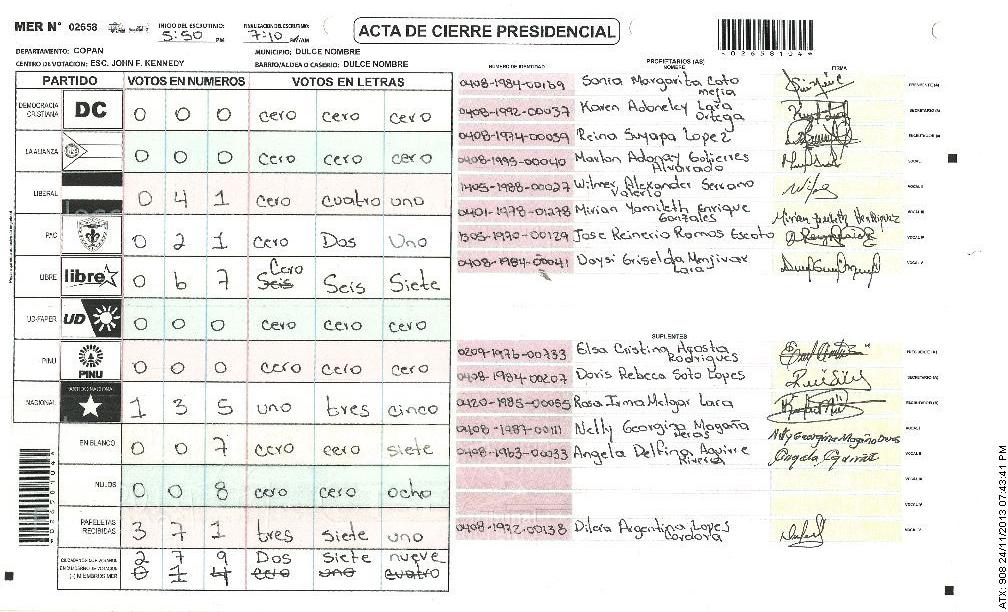 MER N° 02658
INICIO DEL ESCRUTINIO: 5:50 PM
FINALIZACION DEL ESCRUTINIO: 7:10
ACTA DE CIERRE PRESIDENCIAL
02658104
DEPARTAMENTO: COPAN
MUNICIPIO: DULCE NOMBRE
CENTRO DE VOTACION: ESC. JOHN F. KENNEDY
BARRIO/ALDEA O CASERIO: DULCE NOMBRE
PARTIDO VOTOS EN NUMEROS VOTOS EN LETRAS
DEMOCRACIA CRISTIANA DC 0 0 0 cero cero cero
LA ALIANZA 0 0 0 cero cero cero
LIBERAL 0 4 1 cero cuatro uno
PAC 0 2 1 cero Dos Uno
LIBRE libre 0 6 7 Cero Seis Seis Siete
UD-FAPER UD 0 0 0 cero cero cero
PINU PINU 0 0 0 cero cero cero
NACIONAL 1 3 5 uno tres cinco
EN BLANCO 0 0 7 cero cero siete
NULOS 0 0 8 cero cero ocho
PAPELETAS RECIBIDAS 3 7 1 tres siete uno
2 7 9 Dos siete nueve
(-) MIEMBROS MER 0 1 4 cero uno cuatro
NUMERO DE IDENTIDAD
PROPIETARIOS (AS)
NOMBRE
FIRMA
0408-1984-00169 Sonia Margarita Coto Mejia PRESIDENTE (A)
0408-1992-00037 Karen Adoneley Lara Ortega SECRETARIO (A)
0408-1974-00059 Reina Suyapa Lopez
0408-1995-00040 Marlon Adonay Gutierres Alvarado VOCAL I
1405-1988-00027 Wilmer Alexander Serrano Valerio VOCAL II
0401-1978-01278 Mirian Yamileth Enrique Gonzales VOCAL III
1305-1970-00129 Jose Reinerio Ramos Escoto VOCAL IV
0408-1984-00041 Daysi Griselda Menjivar Lara VOCAL V
SUPLENTES
0209-1976-00733 Elsa Cristina Acosta Rodrigues PRESIDENTE (A)
0408-1984-00207 Doris Rebeca Soto Lopes SECRETARIO (A)
0420-1985-00055 Rosa Irma Melgar Lara
0408-1987-00111 Nelly Georgina Magaña Heras Nelly Georgina Magaña Heras VOCAL I
0408-1963-00033 Angela Delfina Aguirre Rivera VOCAL II
VOCAL III
VOCAL IV
0408-1972-00138 Dilcia Argentina Lopes Cordova VOCAL V
02658104
ATX: 908 24/11/2013 07:43:41 PM